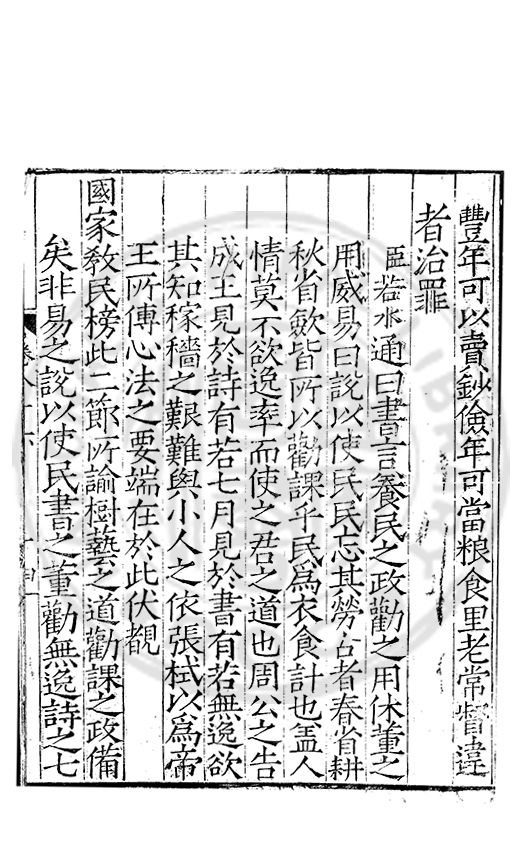 豐年可以賣鈔儉年可當粮食里老常督違
者治罪
臣若水通曰書言養民之政勸之用休董之
用威易曰說以使民民忘其勞古者春省耕
秋省斂皆所以勸課乎民為衣食計也盖人
情莫不欲逸率而使之君之道也周公之告
成王見於詩有若七月見於書有若無逸欲
其知稼穡之艱難與小人之依張栻以為帝
王所傳心法之要端在於此伏覩
國家教民榜此二節所諭樹藝之道勸課之政備
矣非易之說以使民書之董勸無逸詩之七